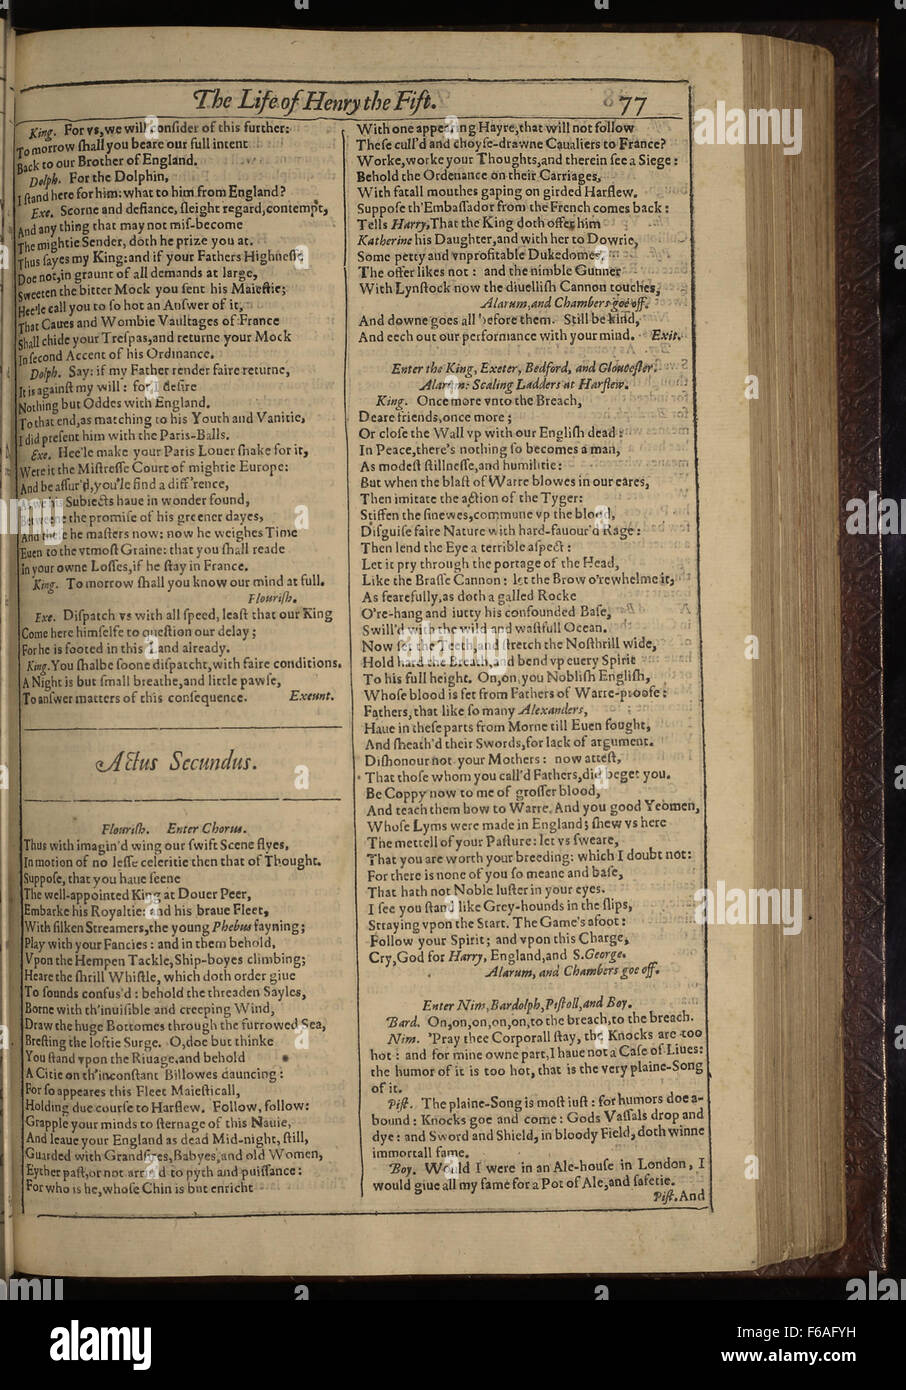 The Life of Henry the Fift. 77
King. For vs, we will conſider of this further:
To morrow ſhall you beare our full intent
Back to our Brother of England.
Dolph. For the Dolphin,
I ſtand here for him: what to him from England?
Exe. Scorne and defiance, ſleight regard, contempt,
And any thing that may not miſ-become
The mightie Sender, doth he prize you at.
Thus ſayes my King: and if your Fathers Highneſſe
Doe not, in graunt of all demands at large,
Sweeten the bitter Mock you ſent his Maieſtie;
Hee'le call you to ſo hot an Anſwer of it,
That Caues and Wombie Vaultages of France
Shall chide your Treſpas, and returne your Mock
In ſecond Accent of his Ordinance.
Dolph. Say: if my Father render faire returne,
It is againſt my will: for I deſire
Nothing but Oddes with England.
To that end, as matching to his Youth and Vanitie,
I did preſent him with the Paris-Balls.
Exe. Hee'le make your Paris Louer ſhake for it,
Were it the Miſtreſſe Court of mightie Europe:
And be aſſur'd, you'le find a diff'rence,
As we his Subiects haue in wonder found,
Betweene the promiſe of his greener dayes,
And theſe he maſters now: now he weighes Time
Euen to the vtmoſt Graine: that you ſhall reade
In your owne Loſſes, if he ſtay in France.
King. To morrow ſhall you know our mind at full.
Flouriſh.
Exe. Diſpatch vs with all ſpeed, leaſt that our King
Come here himſelfe to queſtion our delay;
For he is footed in this Land already.
King. You ſhalbe ſoone diſpatcht, with faire conditions.
A Night is but ſmall breathe, and little pawſe,
To anſwer matters of this conſequence. Exeunt.
Actus Secundus.
Flouriſh. Enter Chorus.
Thus with imagin'd wing our ſwift Scene flyes,
In motion of no leſſe celeritie then that of Thought.
Suppoſe, that you haue ſeene
The well-appointed King at Douer Peer,
Embarke his Royaltie: and his braue Fleet,
With ſilken Streamers, the young Phebus fayning;
Play with your Fancies: and in them behold,
Vpon the Hempen Tackle, Ship-boyes climbing;
Heare the ſhrill Whiſtle, which doth order giue
To ſounds confus'd: behold the threaden Sayles,
Borne with th'inuiſible and creeping Wind,
Draw the huge Bottomes through the furrowed Sea,
Breſting the loftie Surge. O, doe but thinke
You ſtand vpon the Riuage, and behold
A Citie on th'inconſtant Billowes dauncing:
For ſo appeares this Fleet Maieſticall,
Holding due courſe to Harflew. Follow, follow:
Grapple your minds to ſternage of this Nauie,
And leaue your England as dead Mid-night, ſtill,
Guarded with Grandſires, Babyes, and old Women,
Eyther paſt, or not arriu'd to pyth and puiſſance:
For who is he, whoſe Chin is but enricht
With one appearing Hayre, that will not follow
Theſe cull'd and choyſe-drawne Caualiers to France?
Worke, worke your Thoughts, and therein ſee a Siege:
Behold the Ordenance on their Carriages,
With fatall mouthes gaping on girded Harflew.
Suppoſe th'Embaſſador from the French comes back:
Tells Harry, That the King doth offer him
Katherine his Daughter, and with her to Dowrie,
Some petty and vnprofitable Dukedomes.
The offer likes not: and the nimble Gunner
With Lynſtock now the diuelliſh Cannon touches,
Alarum, and Chambers goe off.
And downe goes all before them. Still be kind,
And eech out our performance with your mind. Exit.
Enter the King, Exeter, Bedford, and Gloucester.
Alarum: Scaling Ladders at Harflew.
King. Once more vnto the Breach,
Deare friends, once more;
Or cloſe the Wall vp with our Engliſh dead:
In Peace, there's nothing ſo becomes a man,
As modeſt ſtillneſſe, and humilitie:
But when the blaſt of Warre blowes in our eares,
Then imitate the action of the Tyger:
Stiffen the ſinewes, commune vp the blood,
Diſguiſe faire Nature with hard-fauour'd Rage:
Then lend the Eye a terrible aſpect:
Let it pry through the portage of the Head,
Like the Braſſe Cannon: let the Brow o'rewhelme it,
As fearefully, as doth a galled Rocke
O're-hang and iutty his confounded Baſe,
Swill'd with the wild and waſtfull Ocean.
Now ſet the Teeth, and ſtretch the Noſthrill wide,
Hold hard the Breath, and bend vp euery Spirit
To his full height. On, on you Nobliſh Engliſh,
Whoſe blood is fet from Fathers of Warre-proofe:
Fathers, that like ſo many Alexanders,
Haue in theſe parts from Morne till Euen fought,
And ſheath'd their Swords, for lack of argument.
Diſhonour not your Mothers: now atteſt,
That thoſe whom you call'd Fathers, did beget you.
Be Coppy now to me of groſſer blood,
And teach them how to Warre. And you good Yeomen,
Whoſe Lyms were made in England; ſhew vs here
The mettell of your Paſture: let vs ſweare,
That you are worth your breeding: which I doubt not:
For there is none of you ſo meane and baſe,
That hath not Noble luſter in your eyes.
I ſee you ſtand like Grey-hounds in the ſlips,
Straying vpon the Start. The Game's afoot:
Follow your Spirit; and vpon this Charge,
Cry, God for Harry, England, and S. George.
Alarum, and Chambers goe off.
Enter Nim, Bardolph, Piſtoll, and Boy.
Bard. On, on, on, on, on, to the breach, to the breach.
Nim. 'Pray thee Corporall ſtay, the Knocks are too
hot: and for mine owne part, I haue not a Caſe of Liues:
the humor of it is too hot, that is the very plaine-Song
of it.
Piſt. The plaine-Song is moſt iuſt: for humors doe a-
bound: Knocks goe and come: Gods Vaſſals drop and
dye: and Sword and Shield, in bloody Field, doth winne
immortall fame.
Boy. Would I were in an Ale-houſe in London, I
would giue all my fame for a Pot of Ale, and ſafetie.
Piſt. And
alamy
Image ID: F6AFYH
www.alamy.com